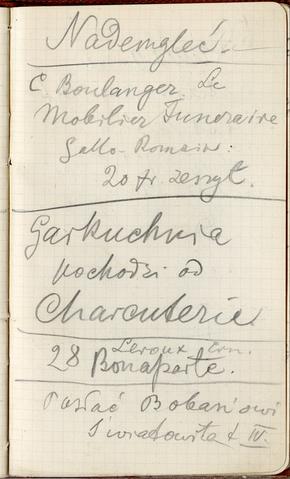 Nademgleć.
C. Boulanger. Le
Mobilier Funeraire
Gallo-Romain:
20 fr. zeszyt.
Garkuchnia
pochodzi od
Charcuterie.
Leroux Ern.
28 Bonaparte.
Posłać Bobasiowi
Światowita t. IV.